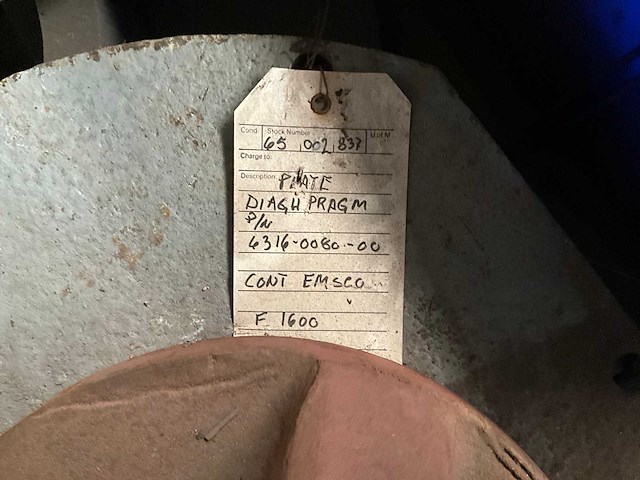 Cond. Stock Number U of M
65 002 837
Charge to:
Description PLATE
DIAGH PRAGM
P/N
6316-0080-00
CONT EMSCO
F 1600